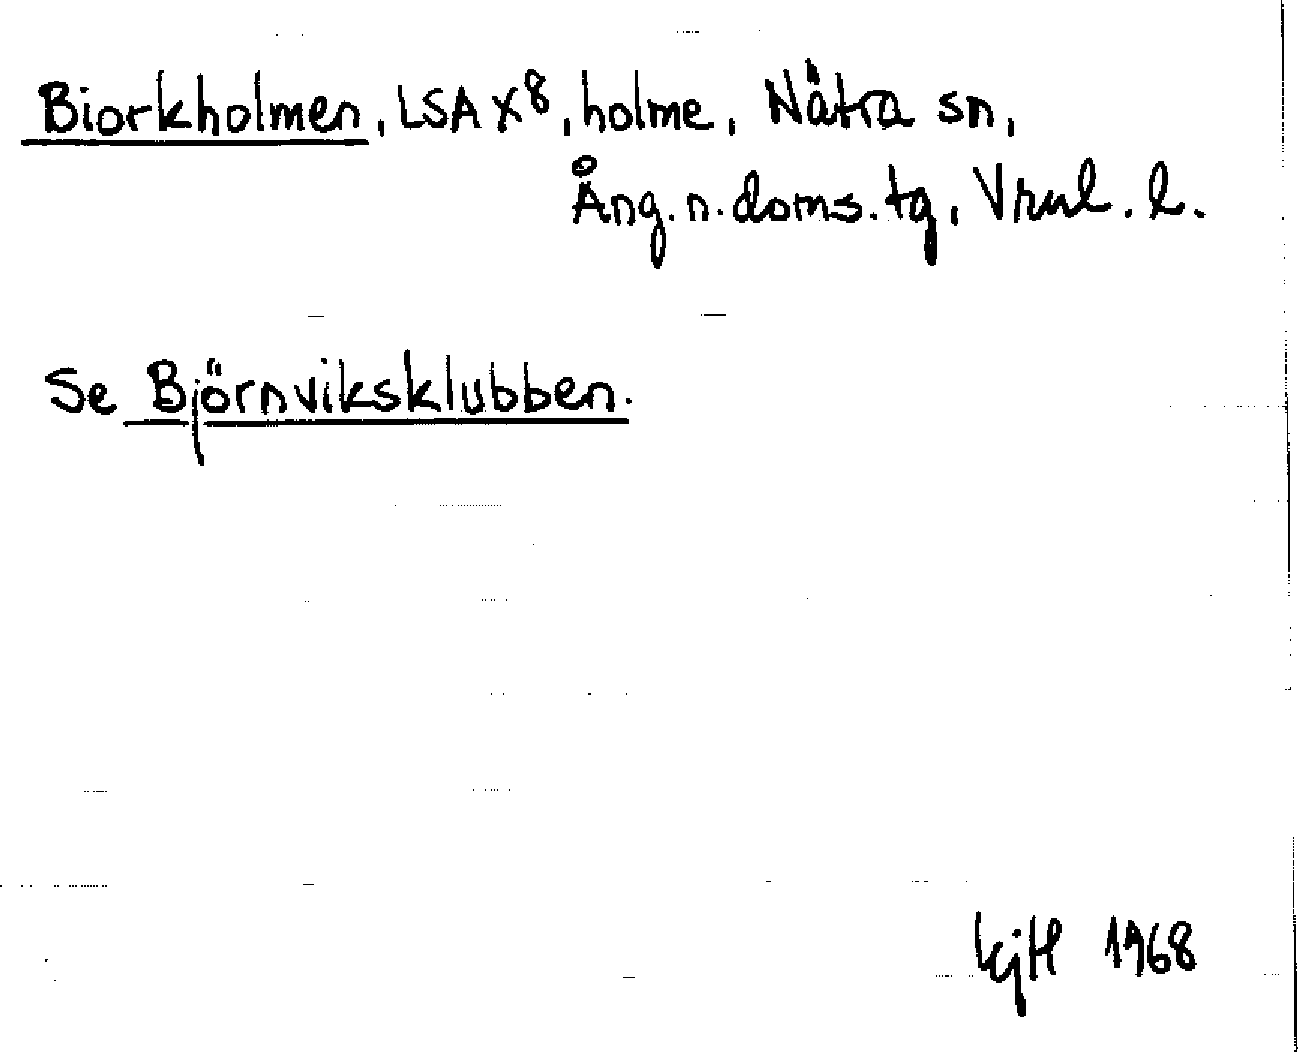 Biorkholmen, LSA X⁸, holme, Nätra sn,
Ång. n. doms. tg, Vrnl. l.
Se Björnviksklubben.
KjH 1968